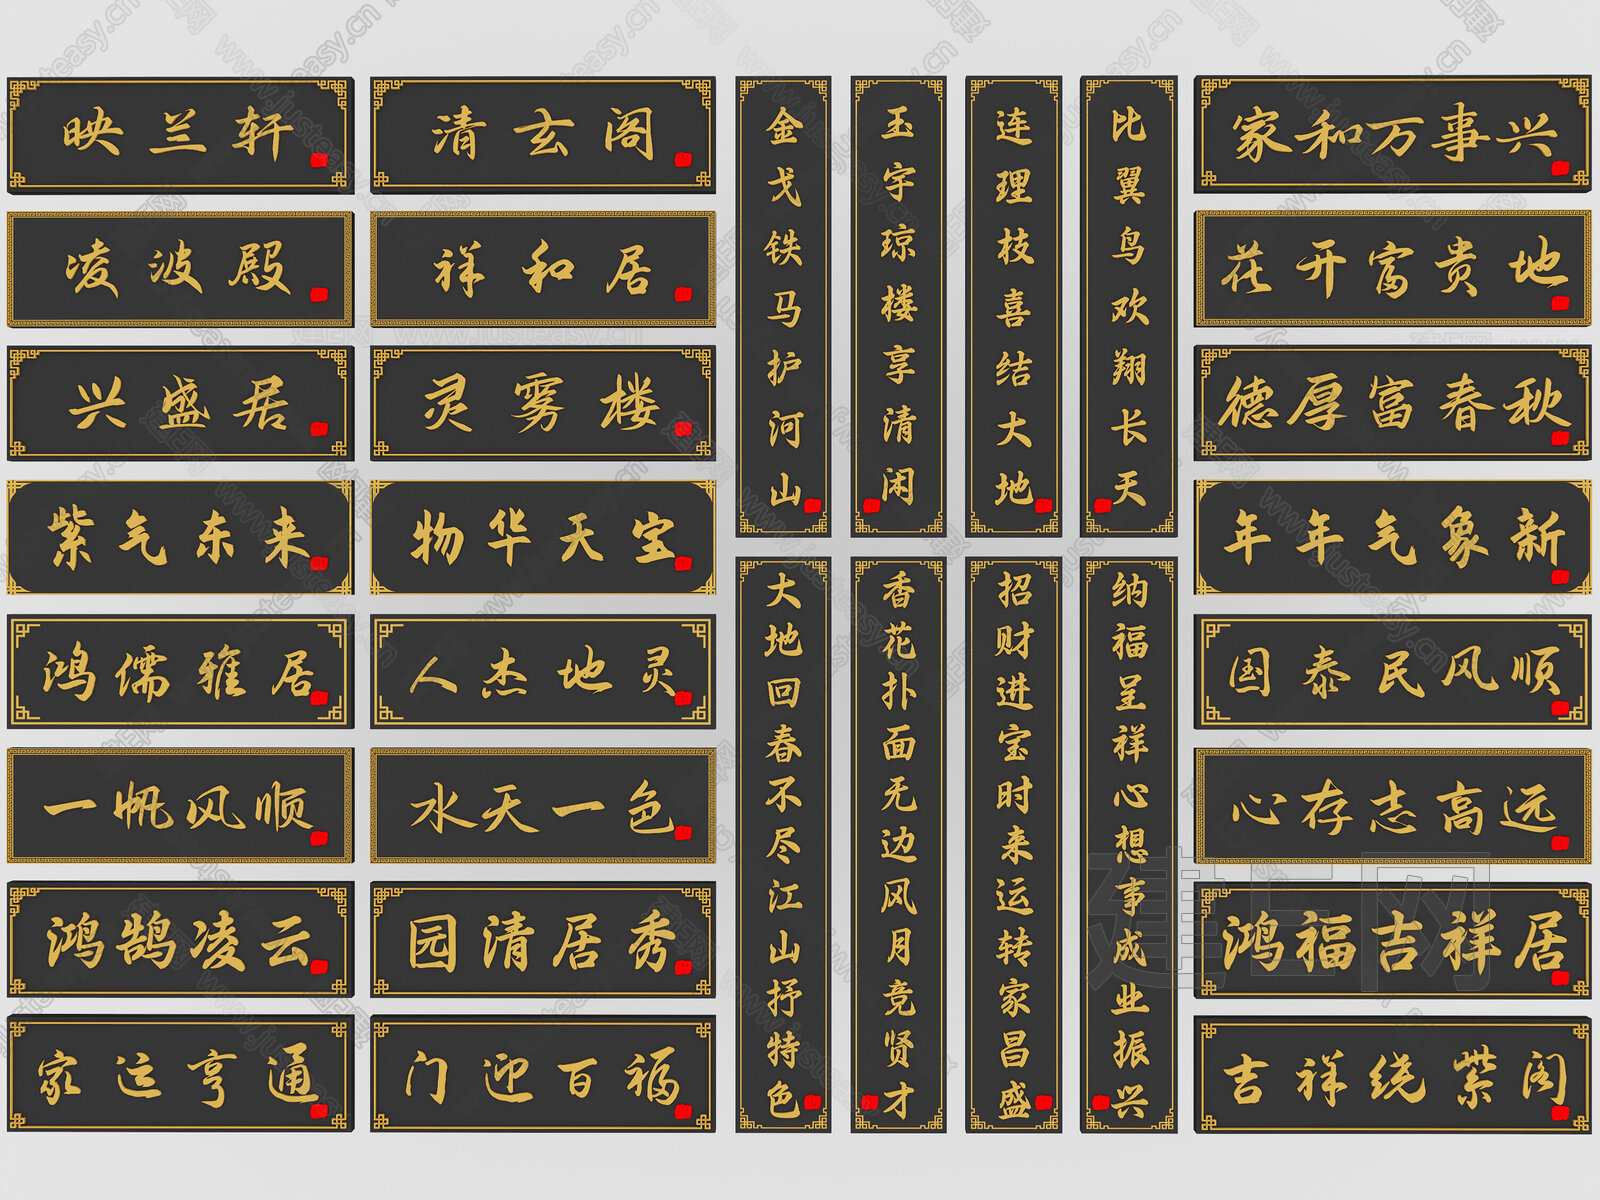 映兰轩
清玄阁
凌波殿
祥和居
兴盛居
灵雾楼
紫气东来
物华天宝
鸿儒雅居
人杰地灵
一帆风顺
水天一色
鸿鹄凌云
园清居秀
家运亨通
门迎百福
金戈铁马护河山
玉宇琼楼享清闲
连理枝喜结大地
比翼鸟欢翔长天
大地回春不尽江山抒特色
香花扑面无边风月竞贤才
招财进宝时来运转家昌盛
纳福呈祥心想事成业振兴
家和万事兴
花开富贵地
德厚富春秋
年年气象新
国泰民风顺
心存志高远
鸿福吉祥居
吉祥绕紫阁
建E网
www.justeasy.cn